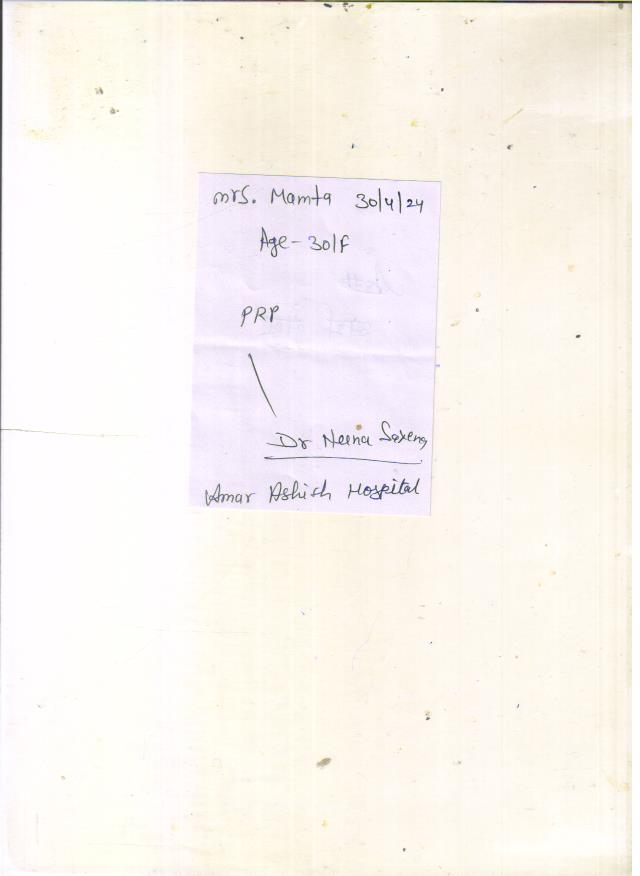 Mrs. Mamta 30/4/24
Age - 30/F
PRP
Dr Neena Saxena
Amar Ashish Hospital